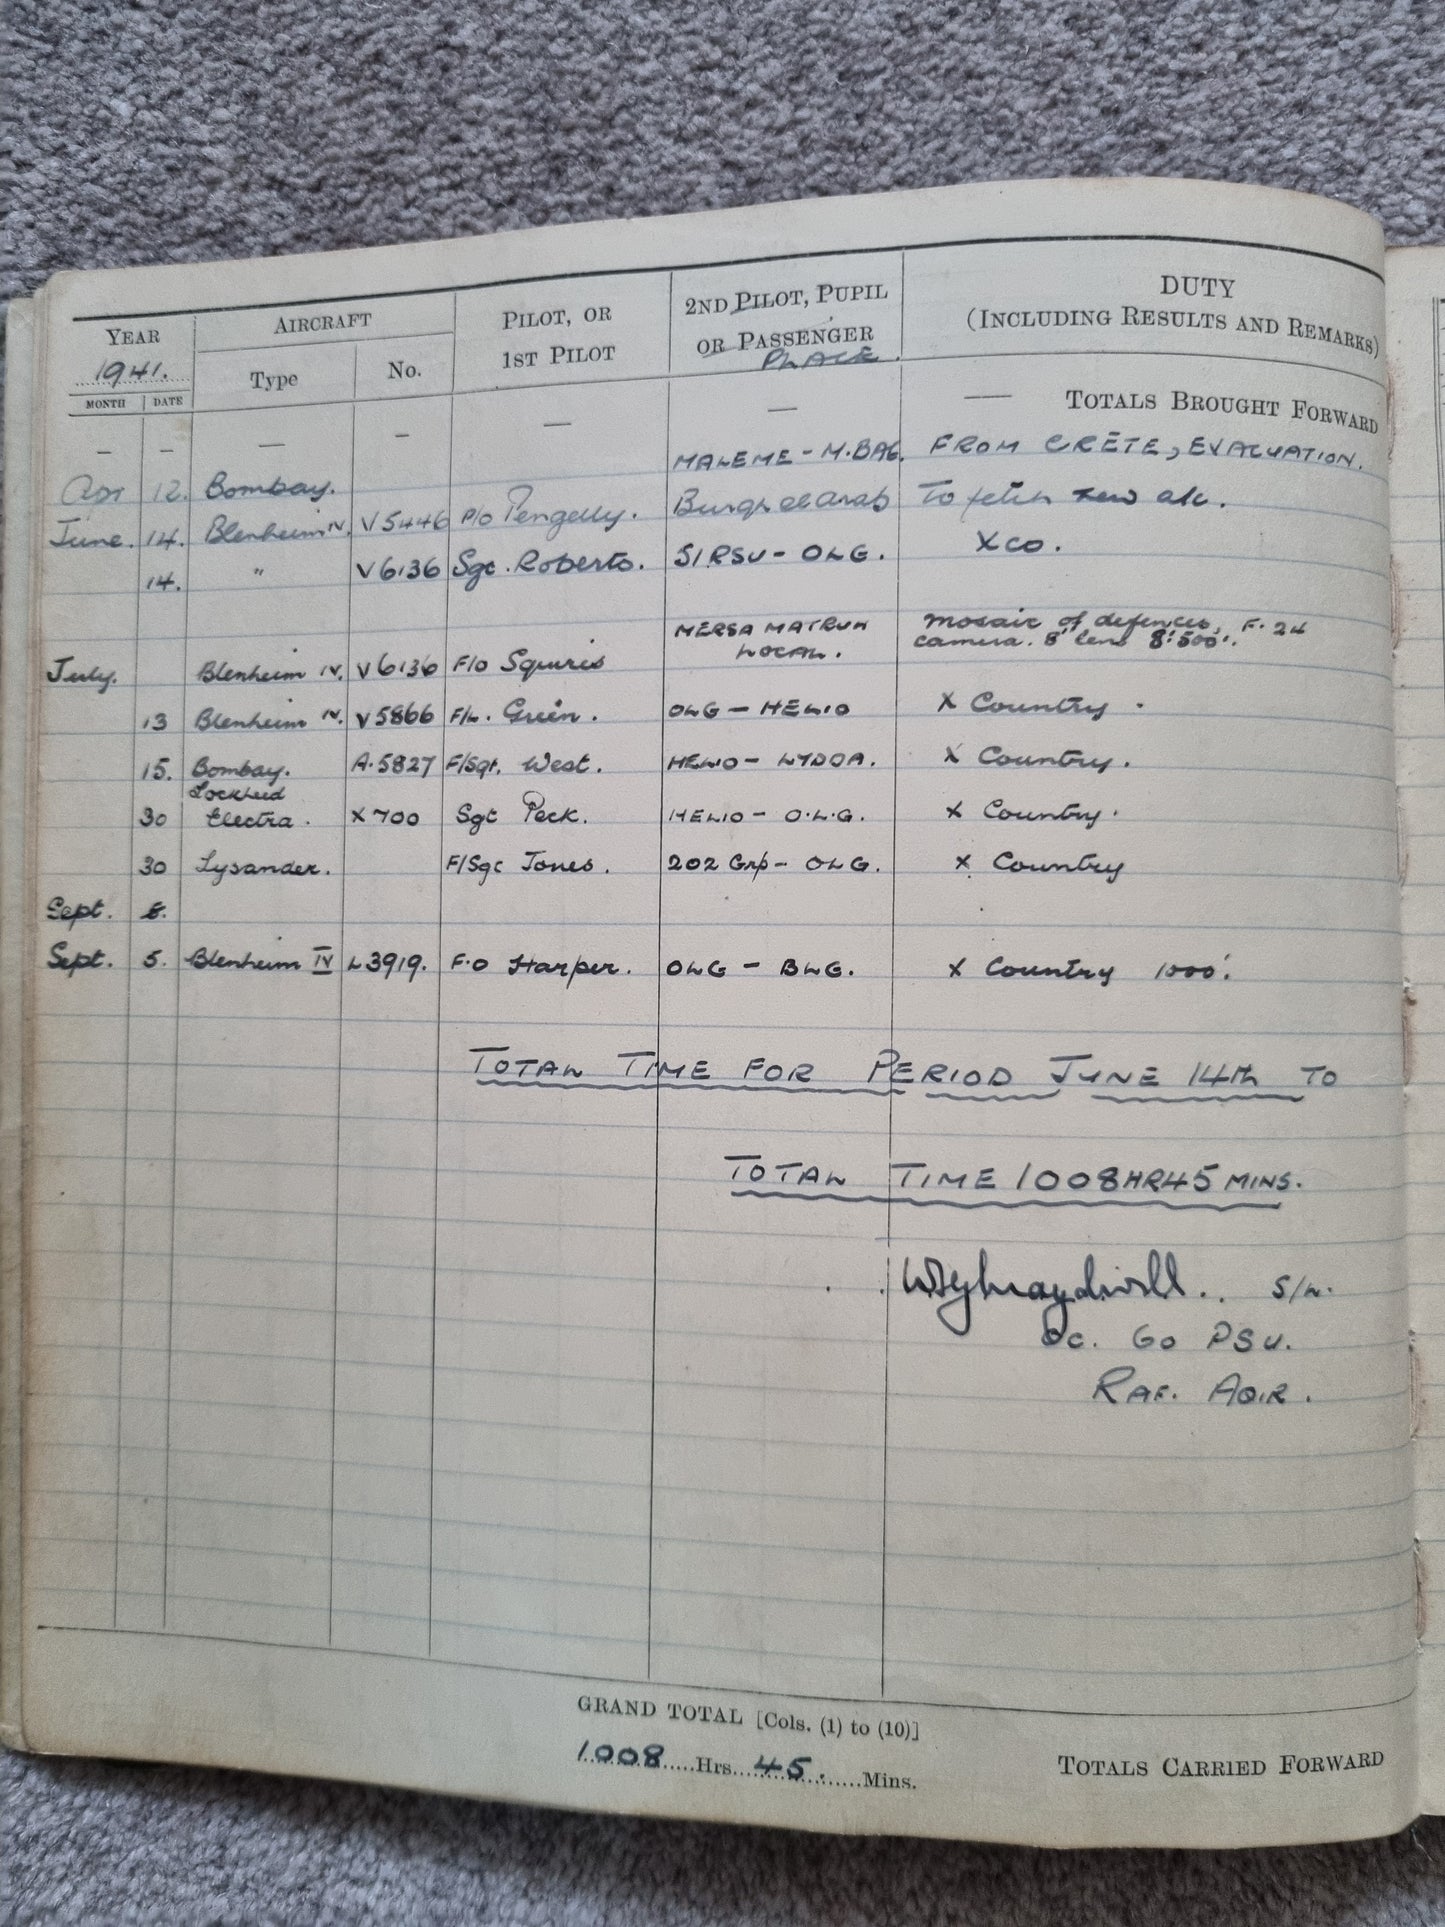 YEAR AIRCRAFT PILOT, OR 2ND PILOT, PUPIL DUTY
1941. Type No. 1ST PILOT OR PASSENGER (INCLUDING RESULTS AND REMARKS)
PLACE.
MONTH DATE
— — — — — — — TOTALS BROUGHT FORWARD
Apr 12. Bombay. MALEME - M.BAG. FROM CRETE, EVACUATION.
June. 14. Blenheim IV. V5446 P/O Pengelly. Burgh el arab To fetch new a/c.
14. " V6136 Sgt. Roberts. SIRSU - OLG. XCO.
July. Blenheim IV. V6136 F/O Squires MERSA MATRUH mosaic of defences, F.24
LOCAL. camera. 8" lens 8:500'.
13 Blenheim IV. V5866 F/L. Green. OLG - HELIO X Country.
15. Bombay. A.5827 F/Sgt. West. HELIO - LYDDA. X Country.
Lockheed
30 Electra. X700 Sgt Peck. HELIO - O.L.G. X Country.
30 Lysander. F/Sgt Jones. 202 Grp - OLG. X Country
Sept. 8.
Sept. 5. Blenheim IV L3919. F.O Harper. OLG - BLG. X Country 1000'.
TOTAL TIME FOR PERIOD JUNE 14th TO
TOTAL TIME 1008HR45 MINS.
S/L.
OC. GO PSU.
RAF. AQIR.
GRAND TOTAL [Cols. (1) to (10)]
1008 Hrs. 45. Mins. TOTALS CARRIED FORWARD